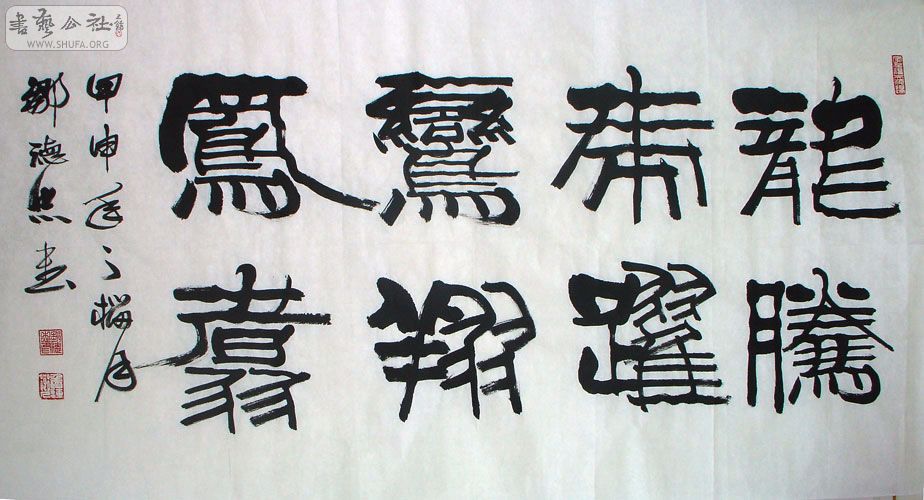 龍騰
虎躍
鸞翔
鳳翥
甲申年之榴月
鄒德忠書
書藝公社
WWW.SHUFA.ORG